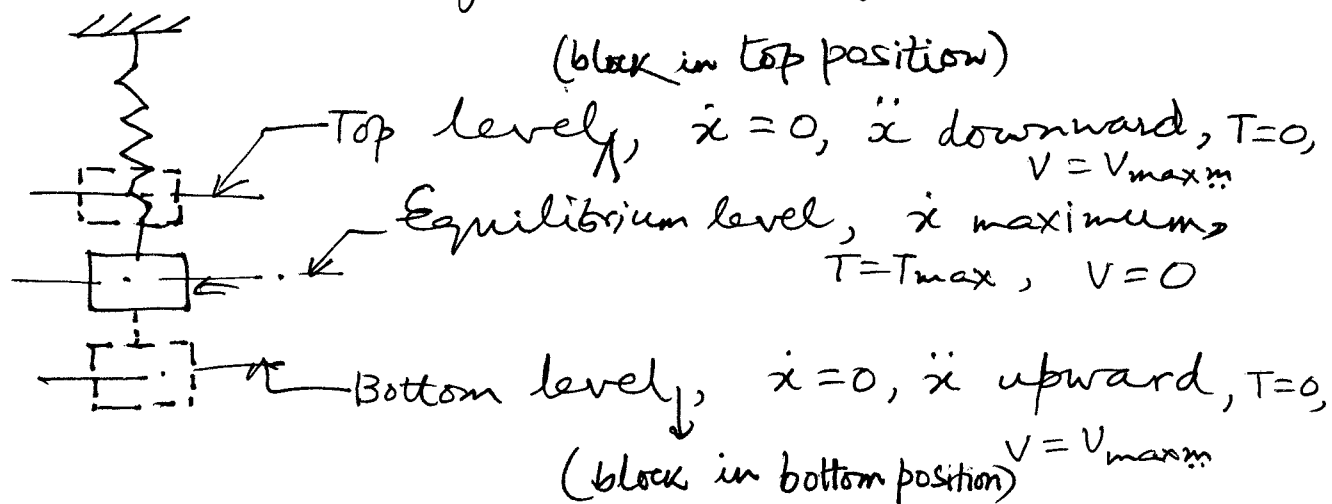 (block in top position)
Top level, ẋ = 0, ẍ downward, T=0,
V = Vmaxm
Equilibrium level, ẋ maximum,
T=Tmax, V=0
Bottom level, ẋ = 0, ẍ upward, T=0,
V = Vmaxm
(block in bottom position)